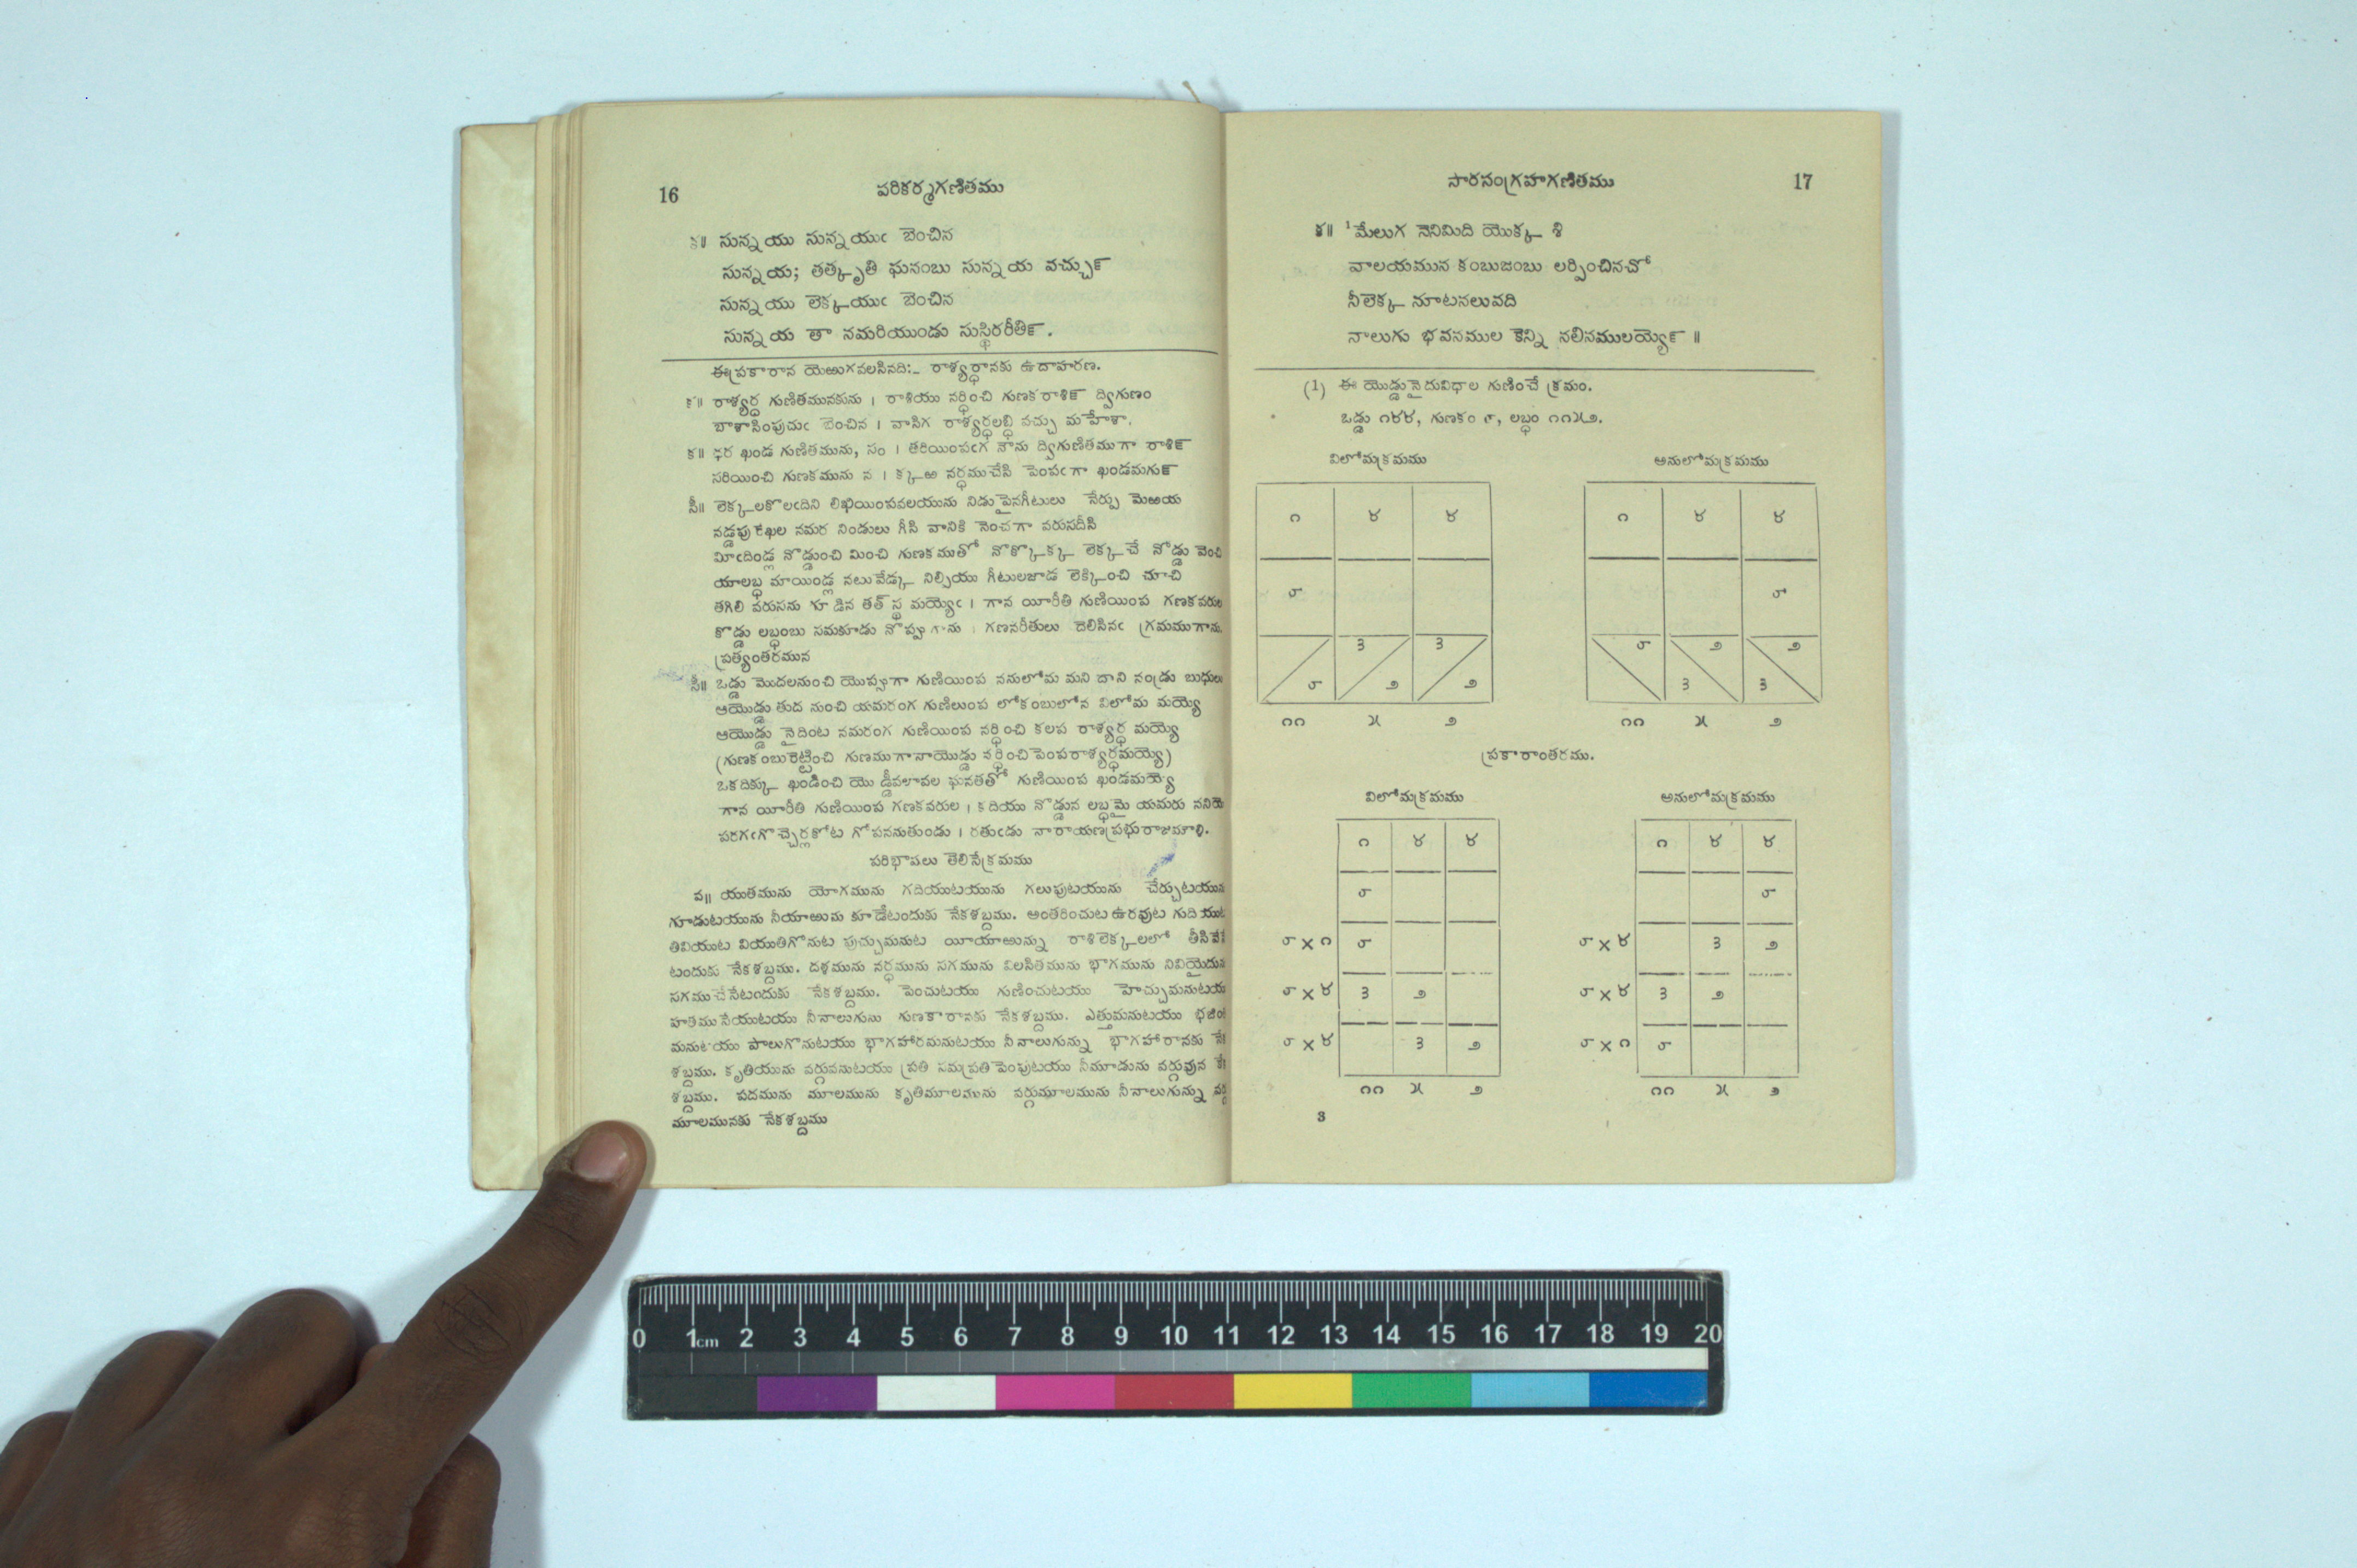 16
పరికర్మగణితము
క॥ సున్నయు సున్నయుఁ బెంచిన
సున్నయ; తత్కృతి ఘనంబు సున్నయ వచ్చున్
సున్నయు లెక్కయుఁ బెంచిన
సున్నయ తా నమరియుండు సుస్థిరరీతిన్.
ఈప్రకారాన యెఱుగవలసినది:– రాశ్యర్ధానకు ఉదాహరణ.
క॥ రాశ్యర్ధ గుణితమునకును । రాశియు నర్ధించి గుణకరాశిన్ ద్విగుణం
బాశాసింపుచుఁ బెంచిన । వాసిగ రాశ్యర్ధలబ్ధి వచ్చు మహేశా.
క॥ ధర ఖండ గుణితమును, సం । తరియింపఁగ నోను ద్విగుణితముగా రాశిన్
సరియించి గుణకమును న । క్కఱ నర్ధముచేసి పెంపఁగా ఖండమగున్
సీ॥ లెక్కలకొలఁదిని లిఖియింపవలయును నిడుపైనగీటులు నేర్పు మెఱయ
నడ్డపురేఖల నమర నిండులు గీసి వానికి నెంచగా వరుసదీసి
మీఁదిండ్ల నొడ్డుంచి మించి గుణకముతో నొక్కొక్క లెక్కచే నొడ్డు పెంచి
యాలబ్ధ మాయిండ్ల నటువేడ్క నిల్పియు గీటులజాడ లెక్కించి చూచి
తగిలి వరుసను గూడిన తత్ స్థ మయ్యెఁ । గాన యీరీతి గుణియింప గణకవరుల
కొడ్డు లబ్ధంబు సమకూడు నొప్పుగాను । గణనరీతులు దెలిసినఁ గ్రమముగాను.
ప్రత్యంతరమున
సీ॥ ఒడ్డు మొదలనుంచి యొప్పుగా గుణియింప ననులోమ మని దాని నండ్రు బుధులు
ఆయొడ్డు తుద నుంచి యమరంగ గుణిలుంప లోకంబులోన విలోమ మయ్యె
ఆయొడ్డు నైదింట నమరంగ గుణియింప నర్ధించి కలప రాశ్యర్ధ మయ్యె
(గుణకంబురెట్టించి గుణముగానాయొడ్డు నర్ధించి పెంపరాశ్యర్ధమయ్యె)
ఒకదిక్కు ఖండించి యొడ్డీవలావల ఘనతతో గుణియింప ఖండమయ్యె
గాన యీరీతి గుణియింప గణకవరుల । కదియు నొడ్డున లబ్ధమై యమరు ననియె
పరగఁగొచ్చెర్లకోట గోపననుతుండు । రతుఁడు నారాయణప్రభురాజమౌళి.
పరిభాషలు తెలిసేక్రమము
వ॥ యుతమును యోగమును గదియుటయును గలుపుటయును చేర్చుటయును
గూడుటయును నీయాఱును కూడేటందుకు నేకశబ్దము. అంతరించుట ఉరవుట గుదియుట
తివియుట వియుతిగొనుట పుచ్చుమనుట యీయాఱున్ను రాశిలెక్కలలో తీసివేసే
టందుకు నేకశబ్దము. దళమును నర్ధమును సగమును విలసితమును భాగమును నివియైదును
సగముచేసేటందుకు నేకశబ్దము. పెంచుటయు గుణించుటయు హెచ్చుమనుటయు
హతము సేయుటయు నీనాలుగును గుణకారానకు నేకశబ్దము. ఎత్తుమనుటయు భజించు
మనుటయు పాలుగొనుటయు భాగహారమనుటయు నీనాలుగున్ను భాగహారానకు నేక
శబ్దము. కృతియును వర్గువనుటయు ప్రతి సమప్రతి పెంపుటయు నీమూడును వర్గువున కేక
శబ్దము. పదమును మూలమును కృతిమూలమును వర్గుమూలమును నీనాలుగున్ను వర్గ
మూలమునకు నేకశబ్దము
సారసంగ్రహగణితము
17
క॥ ¹మేలుగ నెనిమిది యొక్క శి
వాలయమున కంబుజంబు లర్పించినచో
నీలెక్క నూటనలువది
నాలుగు భవనముల కెన్ని నలినములయ్యెన్ ॥
(1) ఈ యొడ్డునైదువిధాల గుణించే క్రమం.
ఒడ్డు ౧౪౪, గుణకం ౮, లబ్ధం ౧౧౫౨.
విలోమక్రమము
అనులోమక్రమము
౧ ౪ ౪
౧ ౪ ౪
౮
౮
౩ ౩
౮ ౨ ౨
౮ ౨ ౨
౩ ౩
౧౧ ౫ ౨
౧౧ ౫ ౨
ప్రకారాంతరము.
విలోమక్రమము
అనులోమక్రమము
౧ ౪ ౪
౧ ౪ ౪
౮
౮
౮ × ౧ ౮
౮ × ౪ ౩ ౨
౮ × ౪ ౩ ౨
౮ × ౪ ౩ ౨
౮ × ౪ ౩ ౨
౮ × ౧ ౮
౧౧ ౫ ౨
౧౧ ౫ ౨
3
0 1cm 2 3 4 5 6 7 8 9 10 11 12 13 14 15 16 17 18 19 20